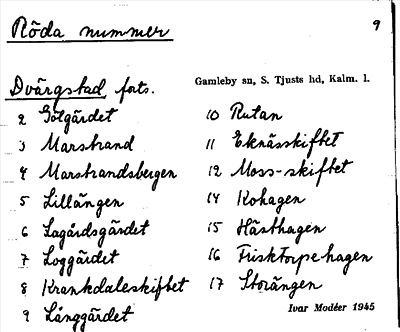 Röda nummer
9
Gamleby sn, S. Tjusts hd, Kalm. l.
Dvärgstad forts.
2 Gölgärdet
3 Marstrand
4 Marstrandsbergen
5 Lillängen
6 Lagårdsgärdet
7 Loggärdet
8 Krankdaleskiftet
9 Långgärdet
10 Rutan
11 Eknässkiftet
12 Moss-skiftet
14 Kohagen
15 Hästhagen
16 Frisktorpehagen
17 Storängen
Ivar Modéer 1945